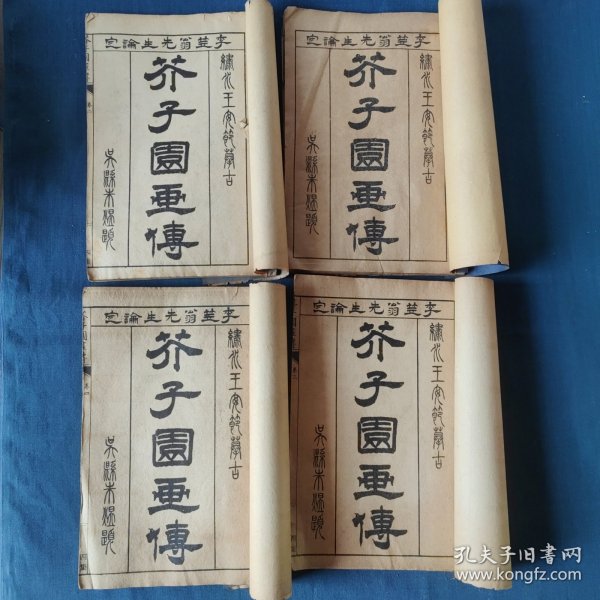 李笠翁先生論定
繡水王安節摹古
芥子園畫傳
吳縣朱㵾題
李笠翁先生論定
繡水王安節摹古
芥子園畫傳
李笠翁先生論定
繡水王安節摹古
芥子園畫傳
李笠翁先生論定
繡水王安節摹古
芥子園畫傳
孔夫子旧书网
www.kongfz.com